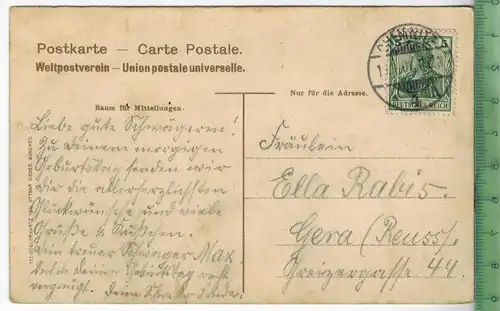 Postkarte — Carte Postale.
Weltpostverein — Union postale universelle.
Raum für Mitteilungen.
Nur für die Adresse.
CHEMNITZ
DEUTSCHES REICH
Liebe gute Schwägerin!
Zu Deinem morgigen
Geburtstag senden wir
Dir die allerherzlichsten
Glückwünsche und viele
Grüße & Küsschen.
Dein treuer Schwager Max
Geburtstag recht
vergnügt. Deine
Fräulein
Ella Rabis.
Gera (Reuss).
Greizergasse 44.